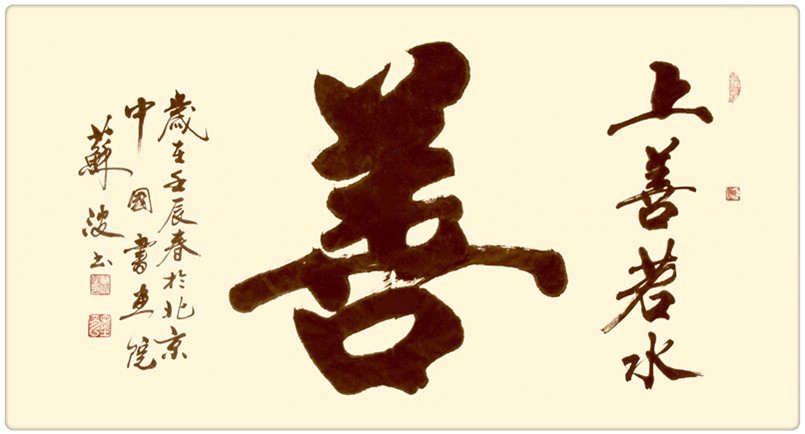 上善若水
善
歲在壬辰春於北京
中國書畫院
蘇波书